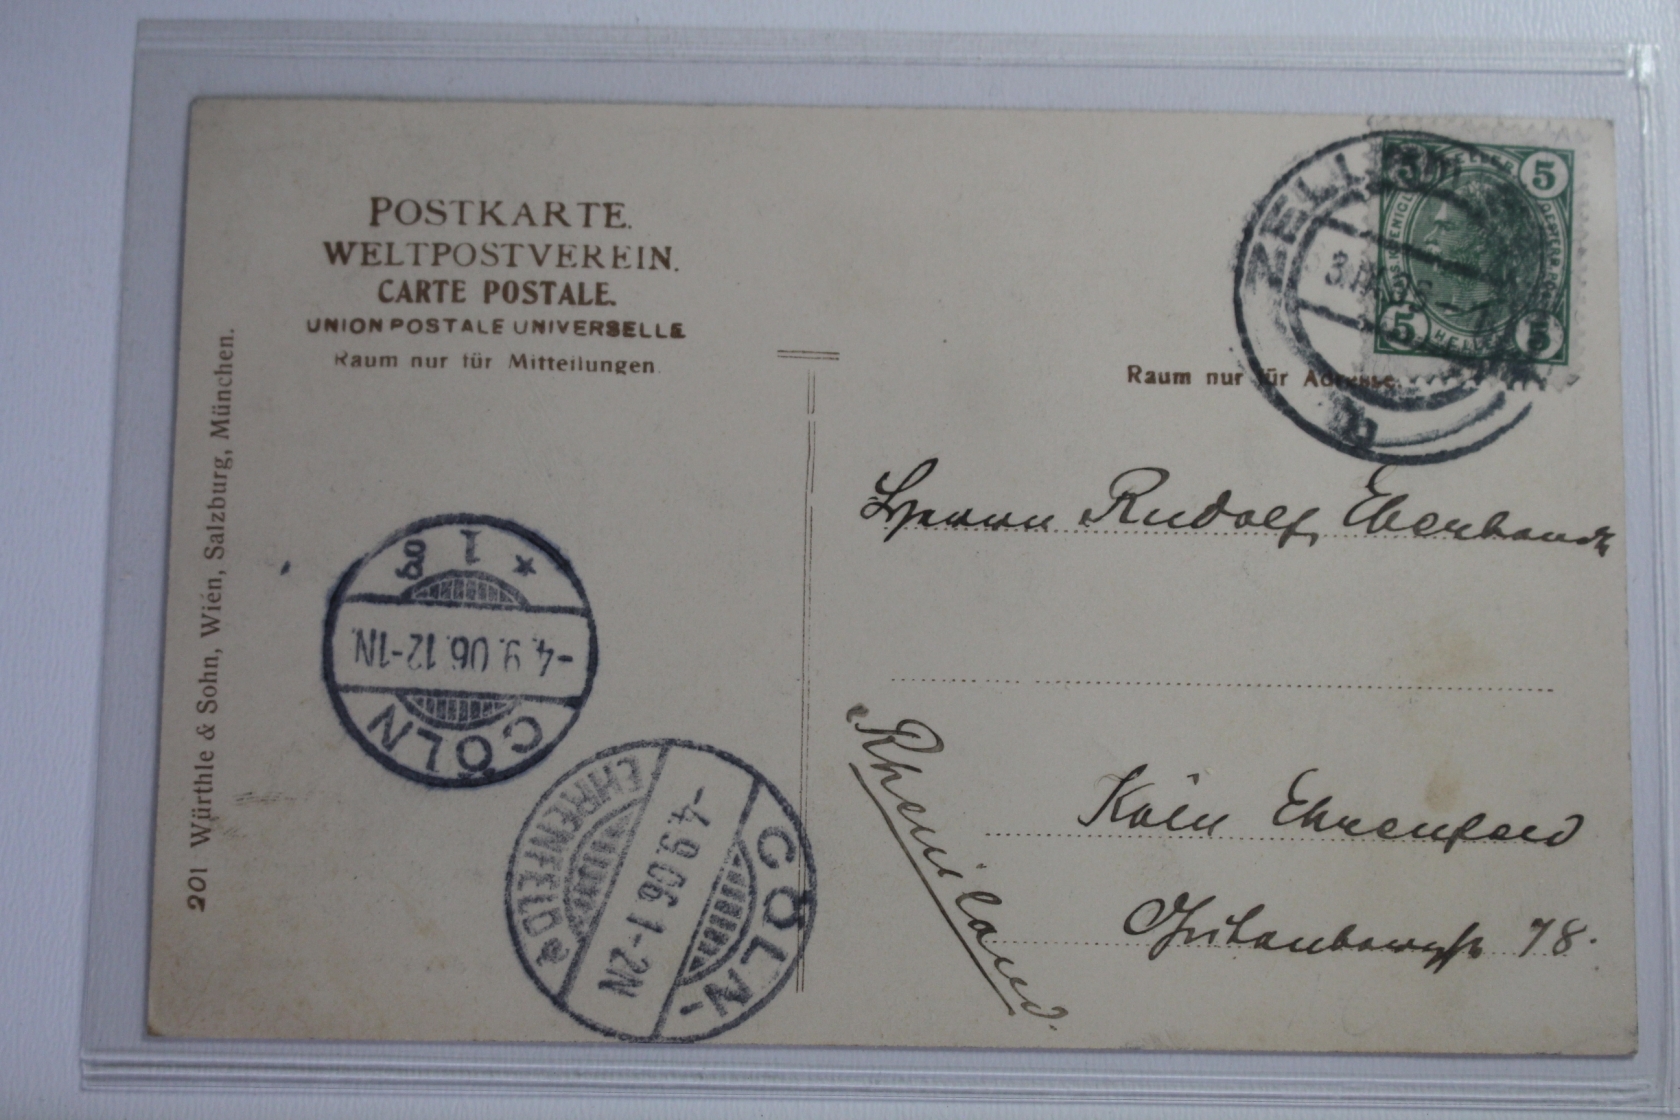 POSTKARTE.
WELTPOSTVEREIN.
CARTE POSTALE.
UNION POSTALE UNIVERSELLE
Raum nur für Mitteilungen.
201 Würthle & Sohn, Wien, Salzburg, München.
CÖLN
-4.9.06.12-1N.
* 1 g
CÖLN-
-4.9.06 1-2N
EHRENFELD a
ZELL
5 HELLER 5
5 HELLER 5
b
Raum nur für Adresse.
Herrn Rudolf
Köln Ehrenfeld
78.
Rheinland.